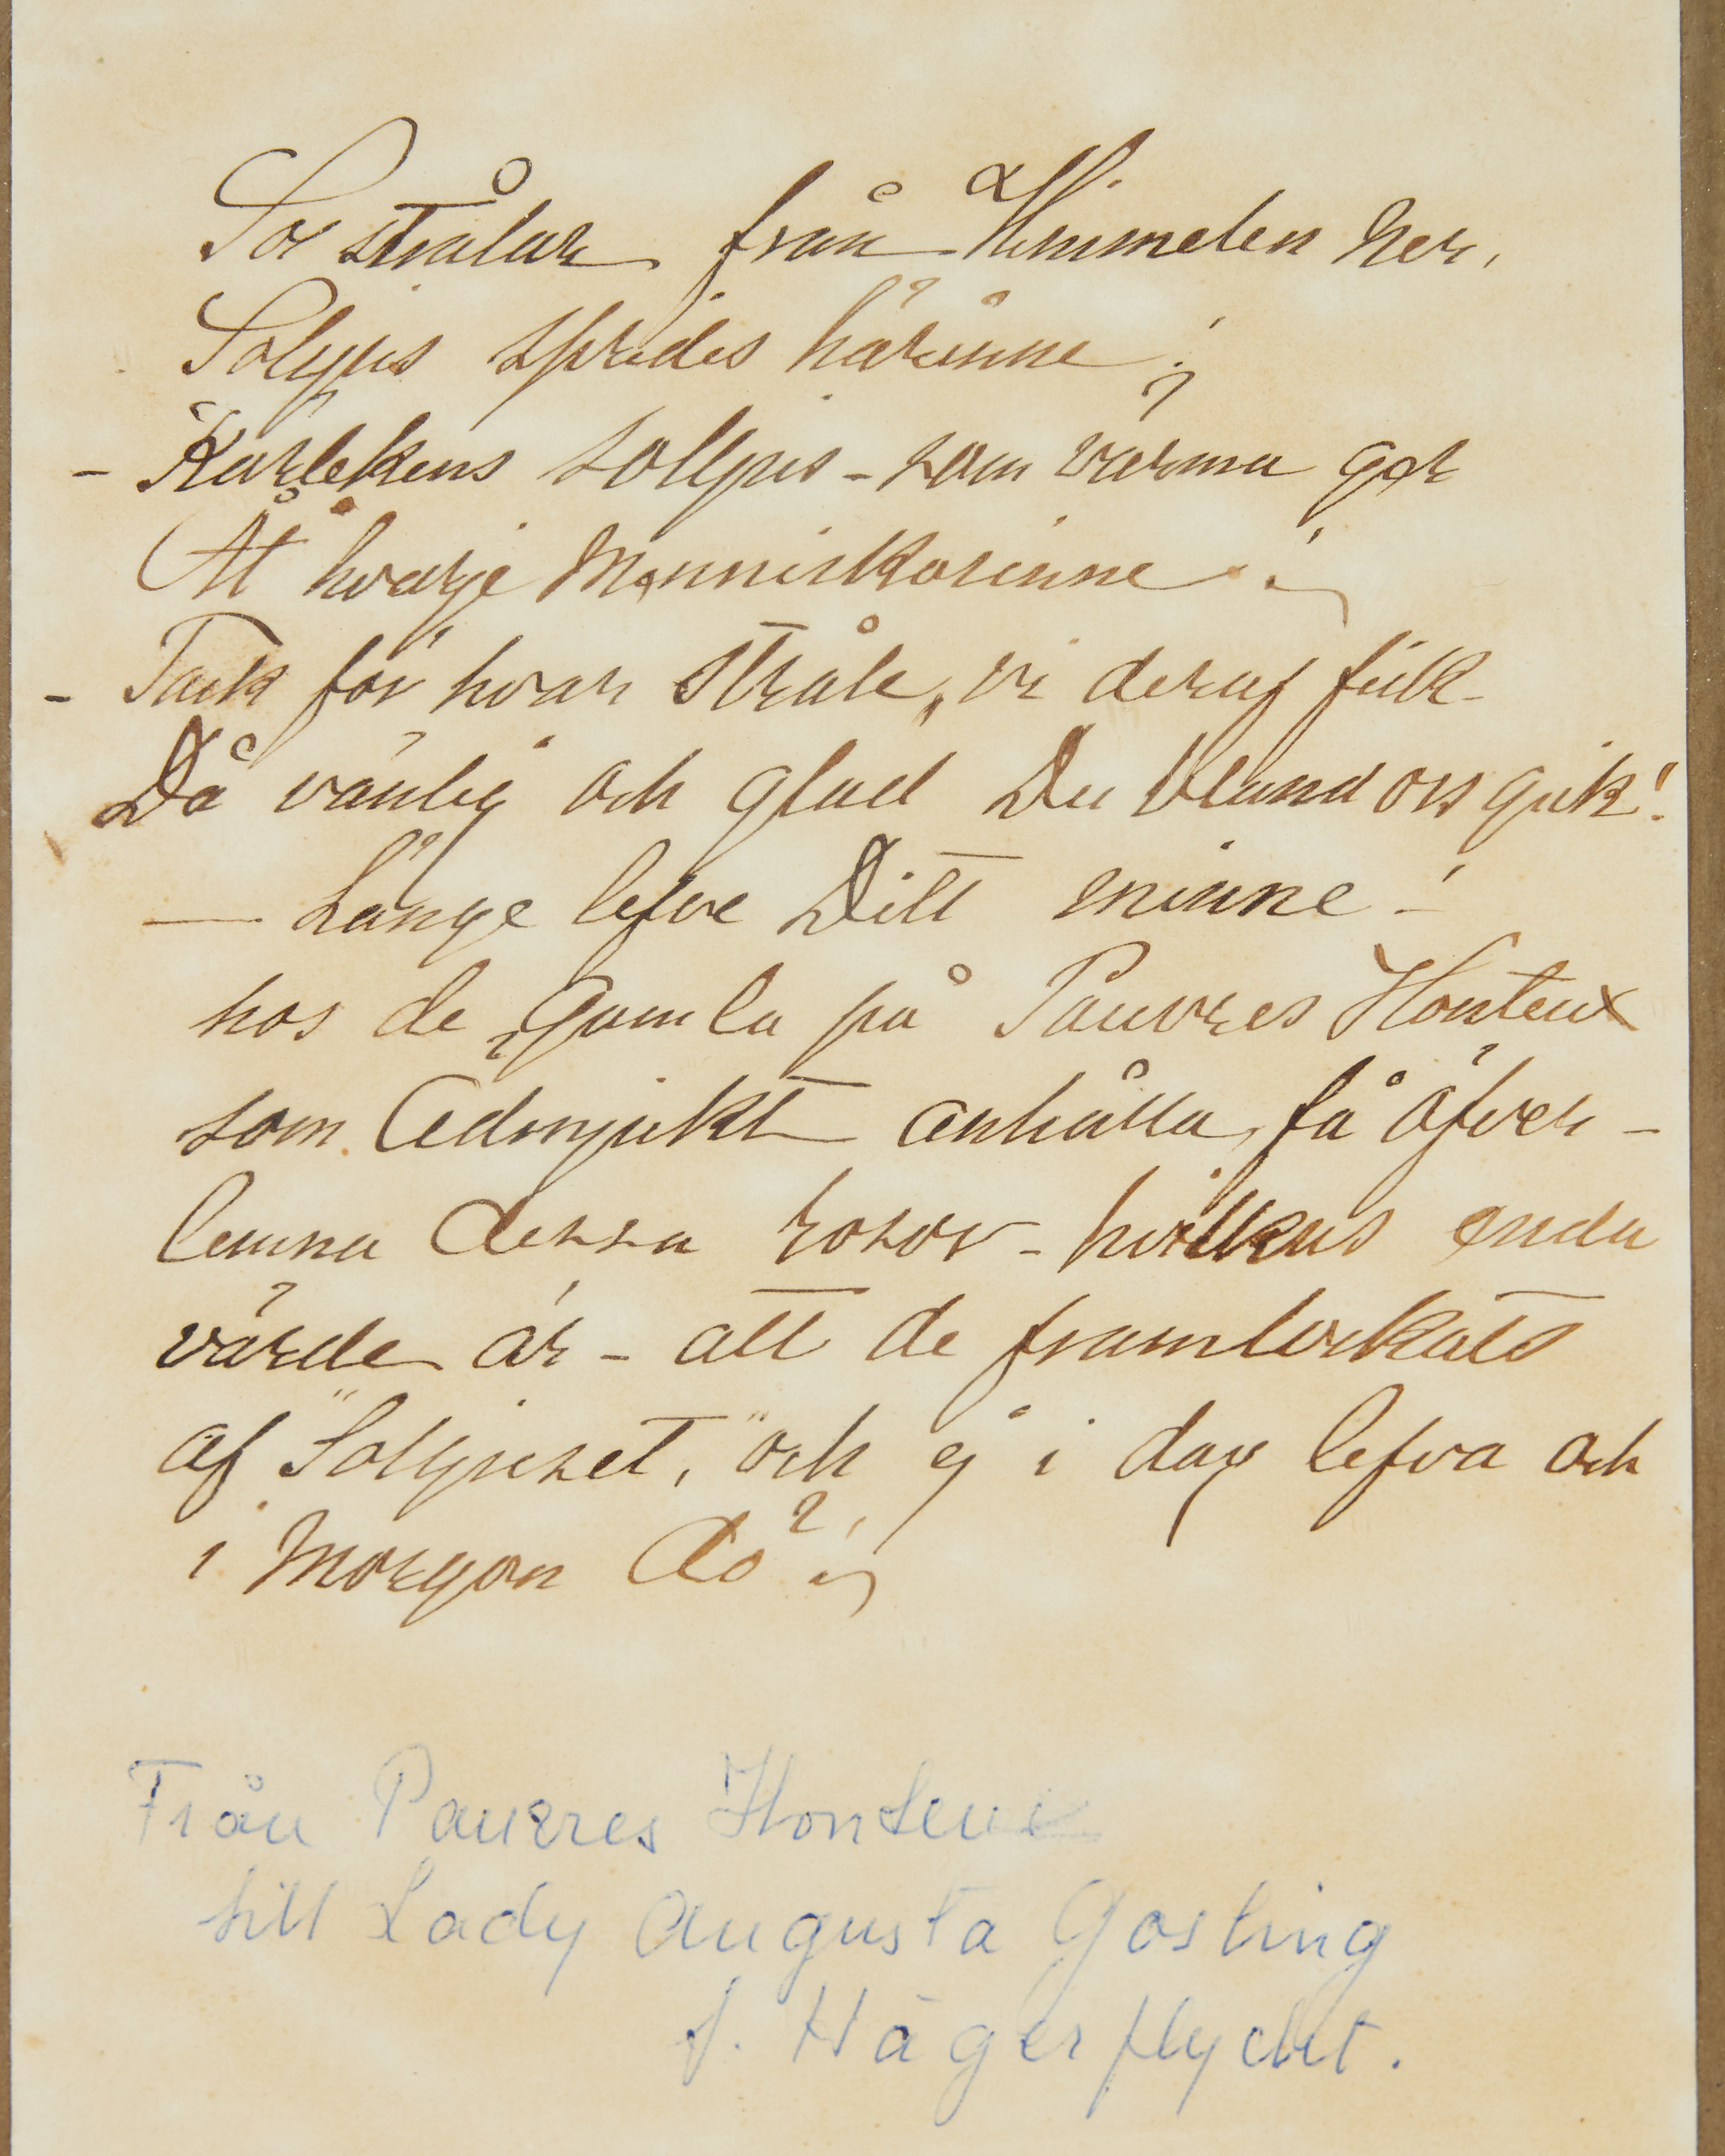 Sol strålar från Himmelen ner,
Solljus sprides härinne;
- Kärlekens solljus - som värma ger
Åt hvarje Menniskosinne;
- Tack för hvar stråle, vi deraf fick -
Då vänlig och glad Du bland oss gick!
— Länge lefve Ditt minne! -
hos de gamla på Pauvres Honteux
som Ödmjukt anhålla, få öfver-
lemna dessa rosor - hvilkas enda
värde är - att de framlockats
af "Solljuset," och ej i dag lefva och
i Morgon dö;
Från Pauvres Honteux
till Lady Augusta Gosling
f. Hägerflycht.